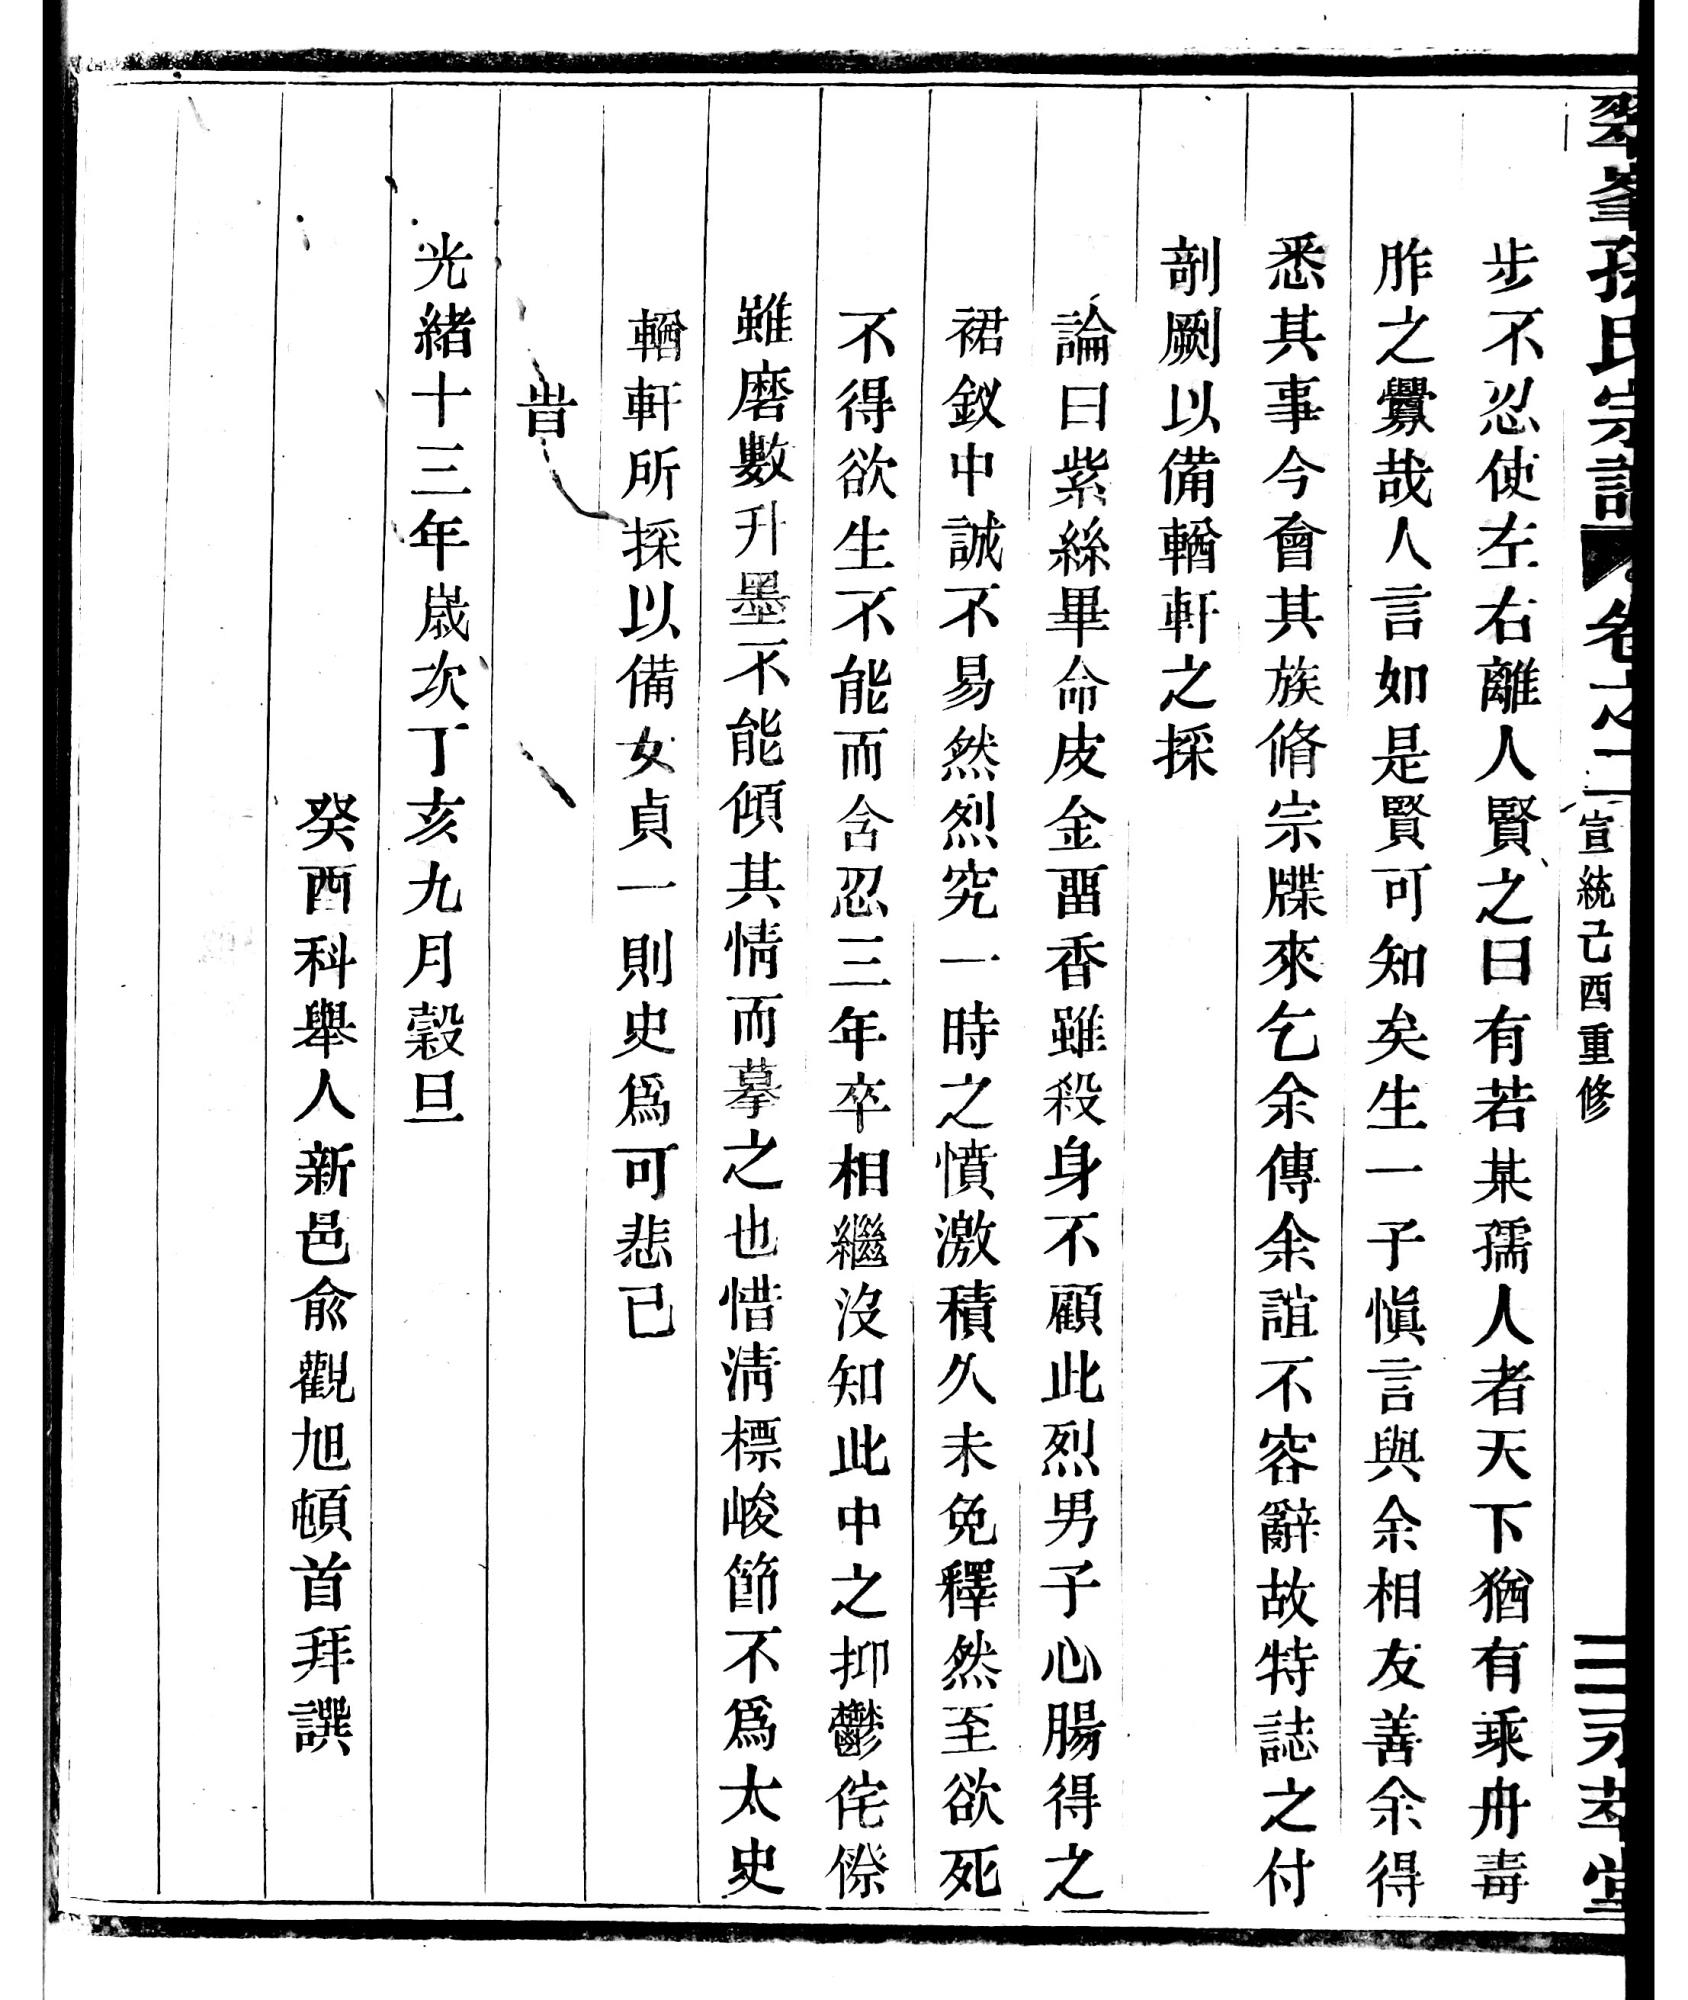 翠峯孫氏宗譜 卷之二 宣統己酉重修 永萃堂
步不忍使左右離人賢之曰有若某孺人者天下猶有乘舟毒
胙之釁哉人言如是賢可知矣生一子愼言與余相友善余得
悉其事今會其族脩宗牒來乞余傳余誼不容辭故特誌之付
剞劂以備輶軒之採
論曰紫絲畢命皮金畱香雖殺身不顧此烈男子心腸得之
裙釵中誠不易然烈究一時之憤激積久未免釋然至欲死
不得欲生不能而含忍三年卒相繼沒知此中之抑鬱侘傺
雖磨數升墨不能傾其情而摹之也惜淸標峻節不爲太史
輶軒所採以備女貞一則史爲可悲已
旹
光緒十三年歲次丁亥九月穀旦
癸酉科舉人新邑俞觀旭頓首拜譔